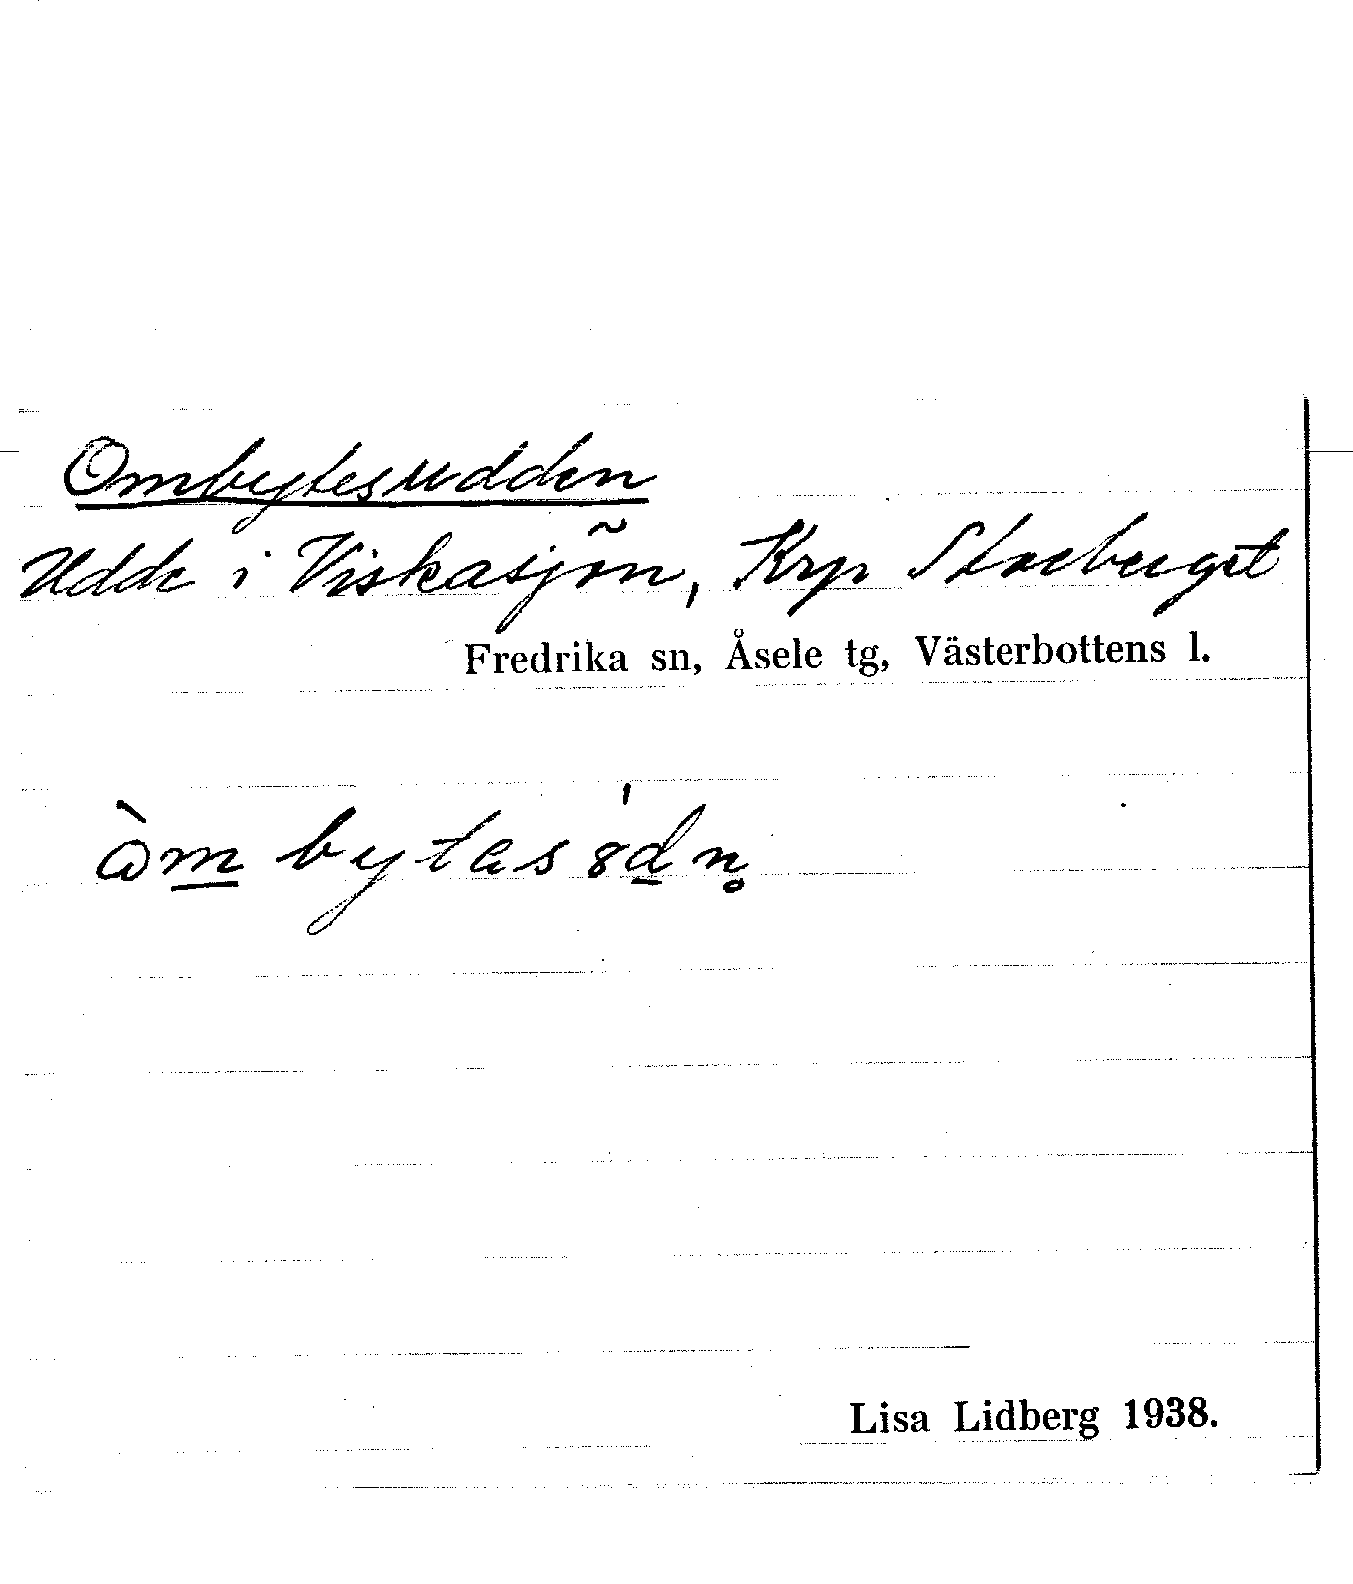 Ombytesudden
Udde i Viskasjön, Krp Storberget
Fredrika sn, Åsele tg, Västerbottens l.
òm bytes8́dn̥
Lisa Lidberg 1938.